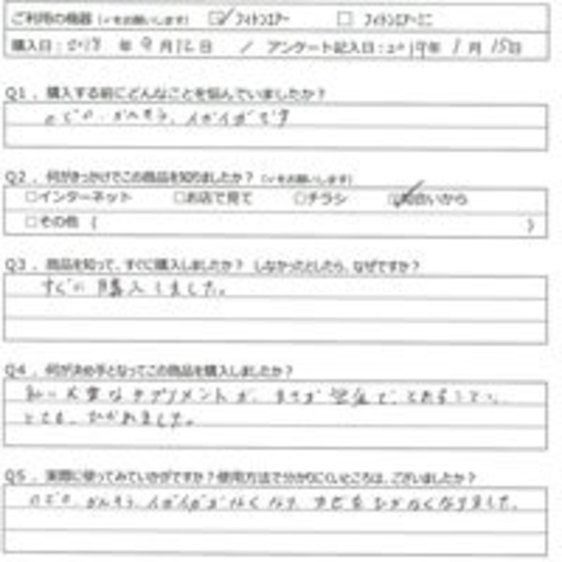 ご利用の機器 (✓をお願いします) ☑ フィトンエアー □ フィトンエアーミニ
購入日:2018 年 9 月 12 日 / アンケート記入日:2019年 1 月 15日
Q1 . 購入する前にどんなことを悩んでいましたか?
のどの かんそう、イガイガです
Q2 . 何がきっかけでこの商品を知りましたか? (✓をお願いします)
□インターネット □お店で見て □チラシ ☑知合いから
□その他 ( )
Q3 . 商品を知って、すぐに購入しましたか? しなかったとしたら、なぜですか?
すぐに購入しました。
Q4 . 何が決め手となってこの商品を購入しましたか?
私に大事なサプリメントが、
とても、ひかれました。
Q5 . 実際に使ってみていかがですか?使用方法で分かりにくいところは、ございましたか?
のどの かんそう、イガイガがなくなり、カゼをひかなくなりました。